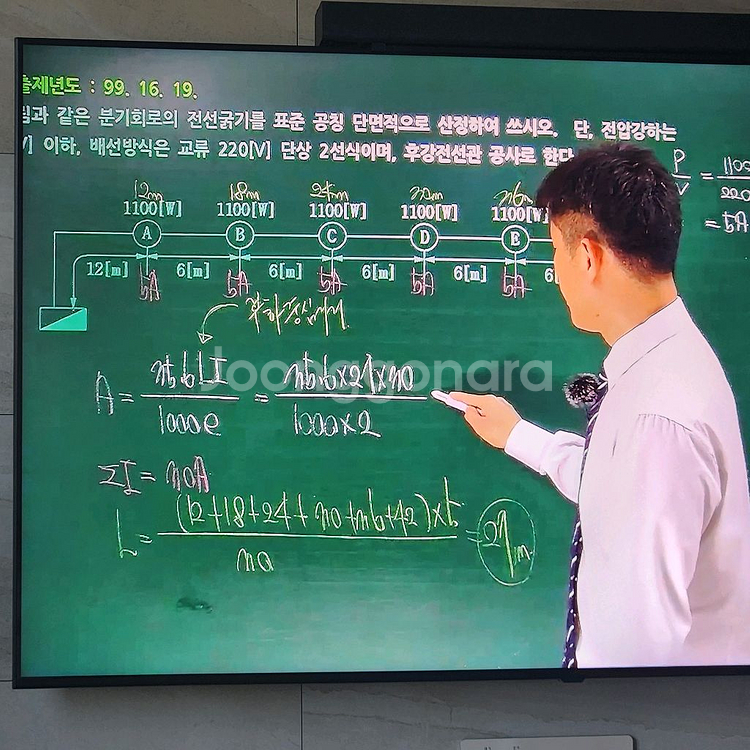 출제년도 : 99. 16. 19.
림과 같은 분기회로의 전선굵기를 표준 공칭 단면적으로 산정하여 쓰시오. 단, 전압강하는
V] 이하, 배선방식은 교류 220[V] 단상 2선식이며, 후강전선관 공사로 한다
P/V = 1100/220
= 5A
12m 18m 24m 30m 36m
1100[W] 1100[W] 1100[W] 1100[W] 1100[W]
A B C D E
12[m] 6[m] 6[m] 6[m] 6[m] 6[
5A 5A 5A 5A 5A
부하중심까지
A = 35.6LI / 1000e = 35.6×27×30 / 1000×2
ΣI = 30A
L = (12+18+24+30+36+42)×5 / 30 = 27m
Joonggonara